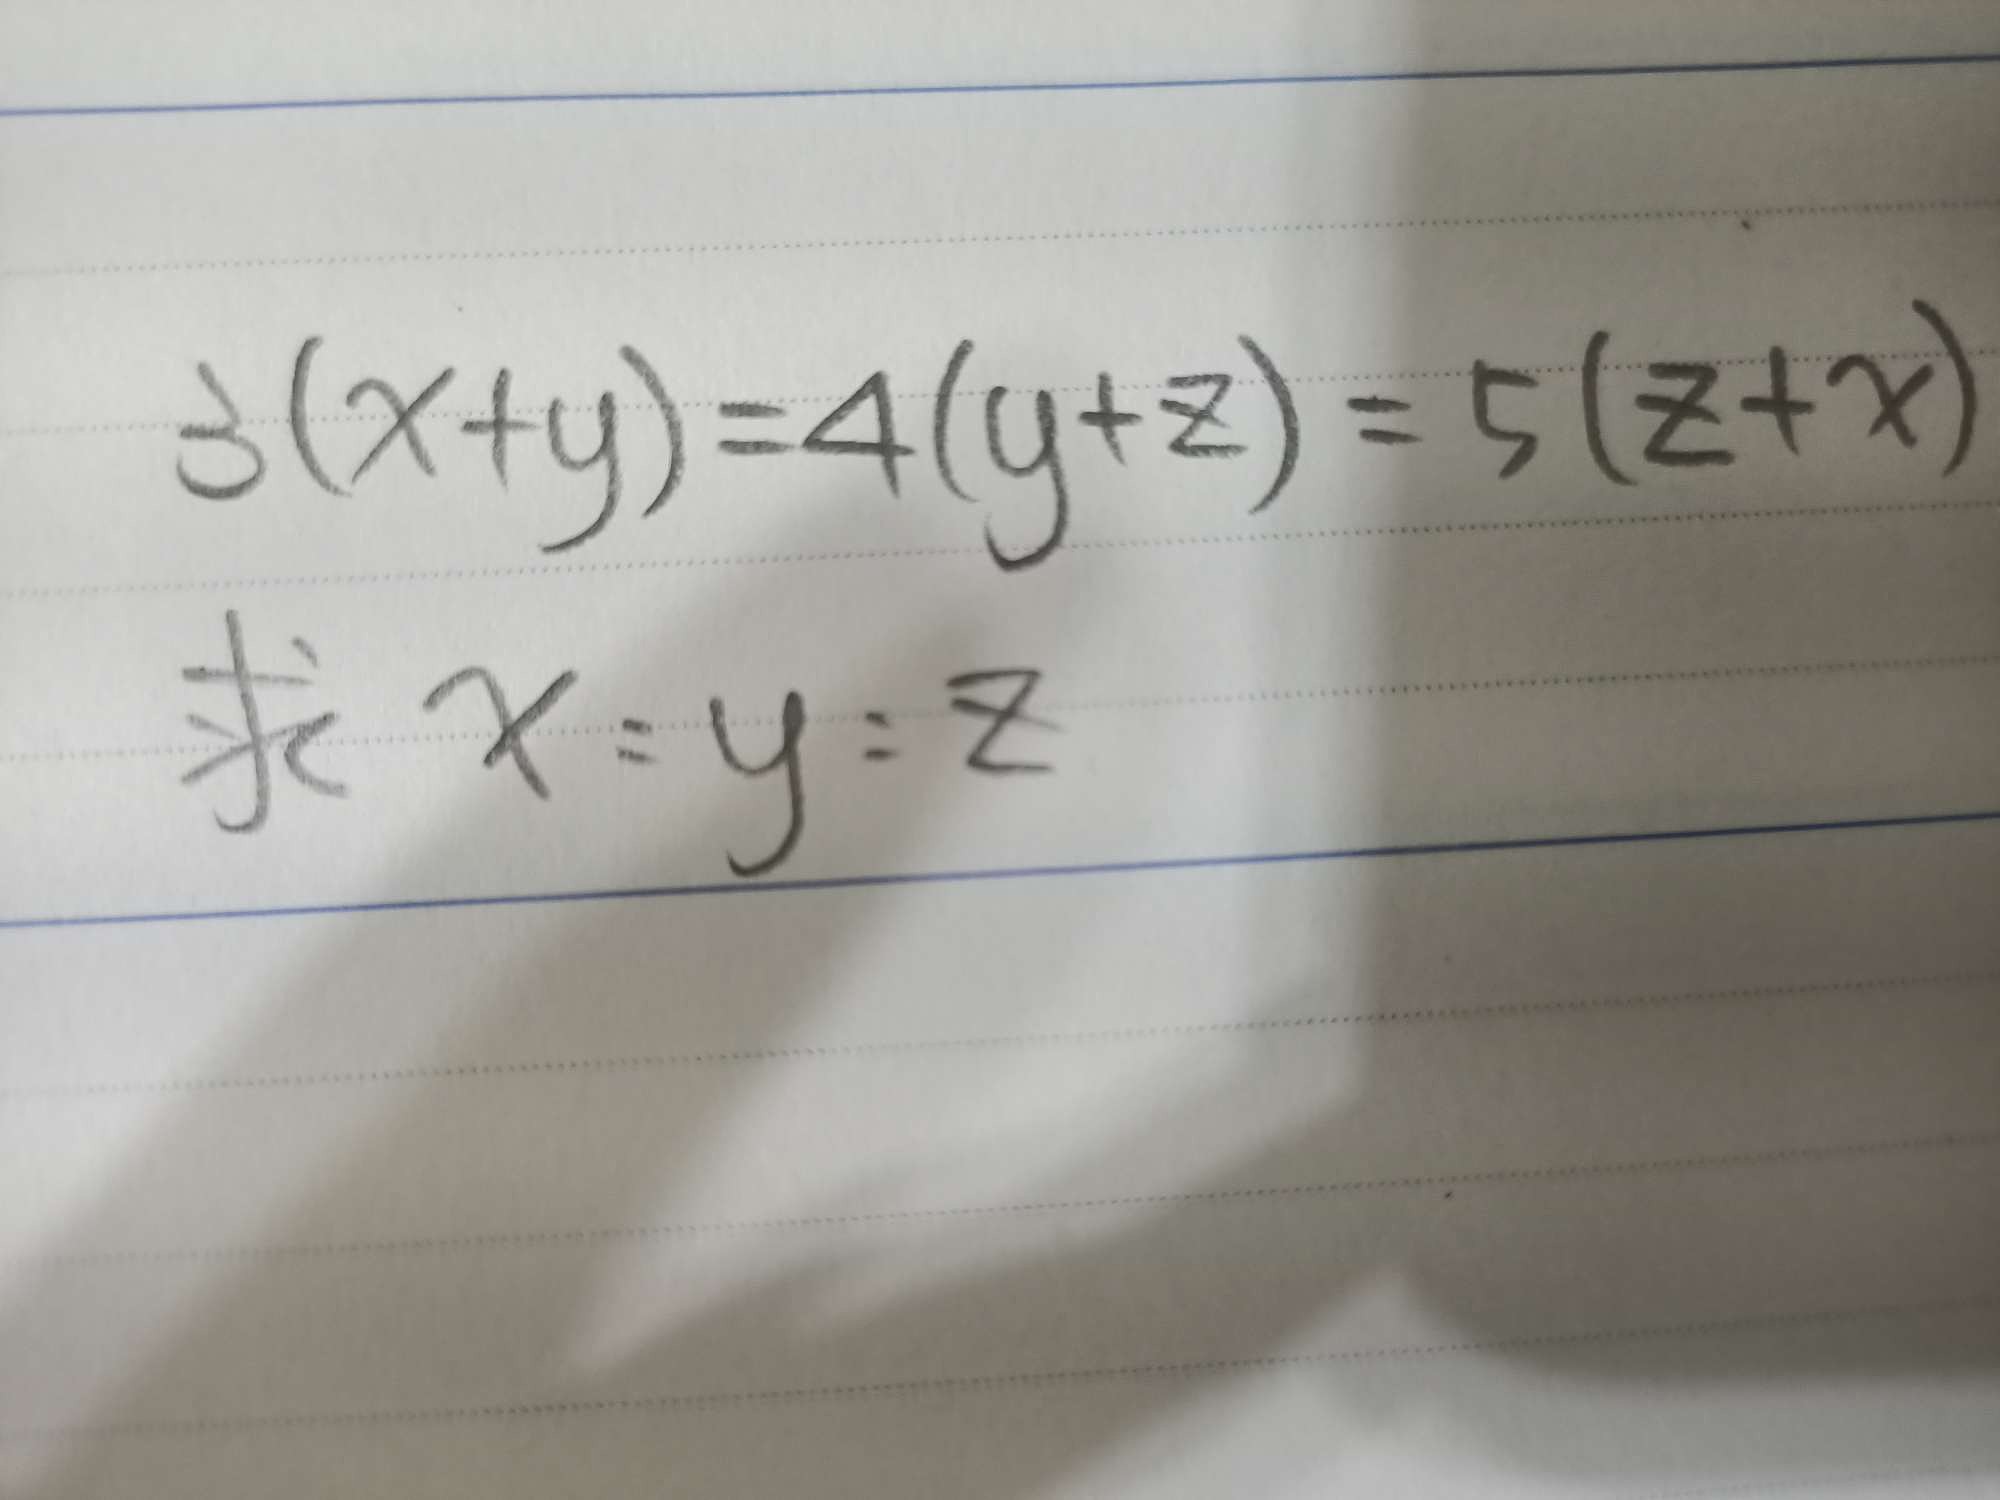 3(x+y)=4(y+z)=5(z+x)
求 x:y:z